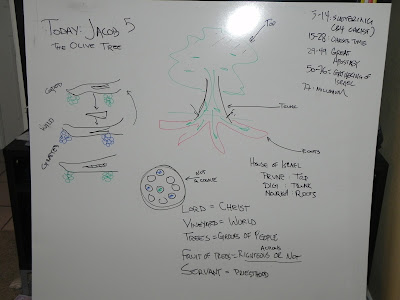 TODAY: JACOB 5
THE OLIVE TREE
GOOD
WILD
GRAFTED
TOP
TRUNK
ROOTS
NOT
3-14: SCATTERING
(BY CHRIST)
15-28: CHRISTS TIME
29-49: GREAT
APOSTASY
50-76: GATHERING OF
ISRAEL
77: MILLENNIUM
HOUSE OF ISRAEL
PRUNE: TOP
DIG: TRUNK
NOURISH: ROOTS
LORD = CHRIST
VINEYARD = WORLD
TREES = GROUPS OF PEOPLE
ACTIONS
FRUIT OF TREES = RIGHTEOUS OR NOT
SERVANT = PRIESTHOOD